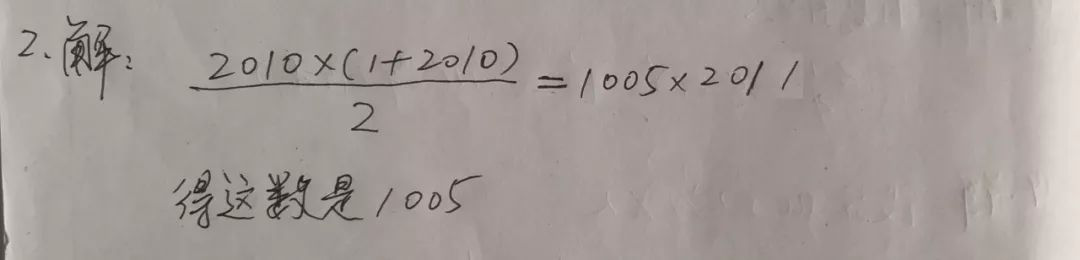 2、解： 2010×(1+2010)/2 =1005×2011
得这数是1005